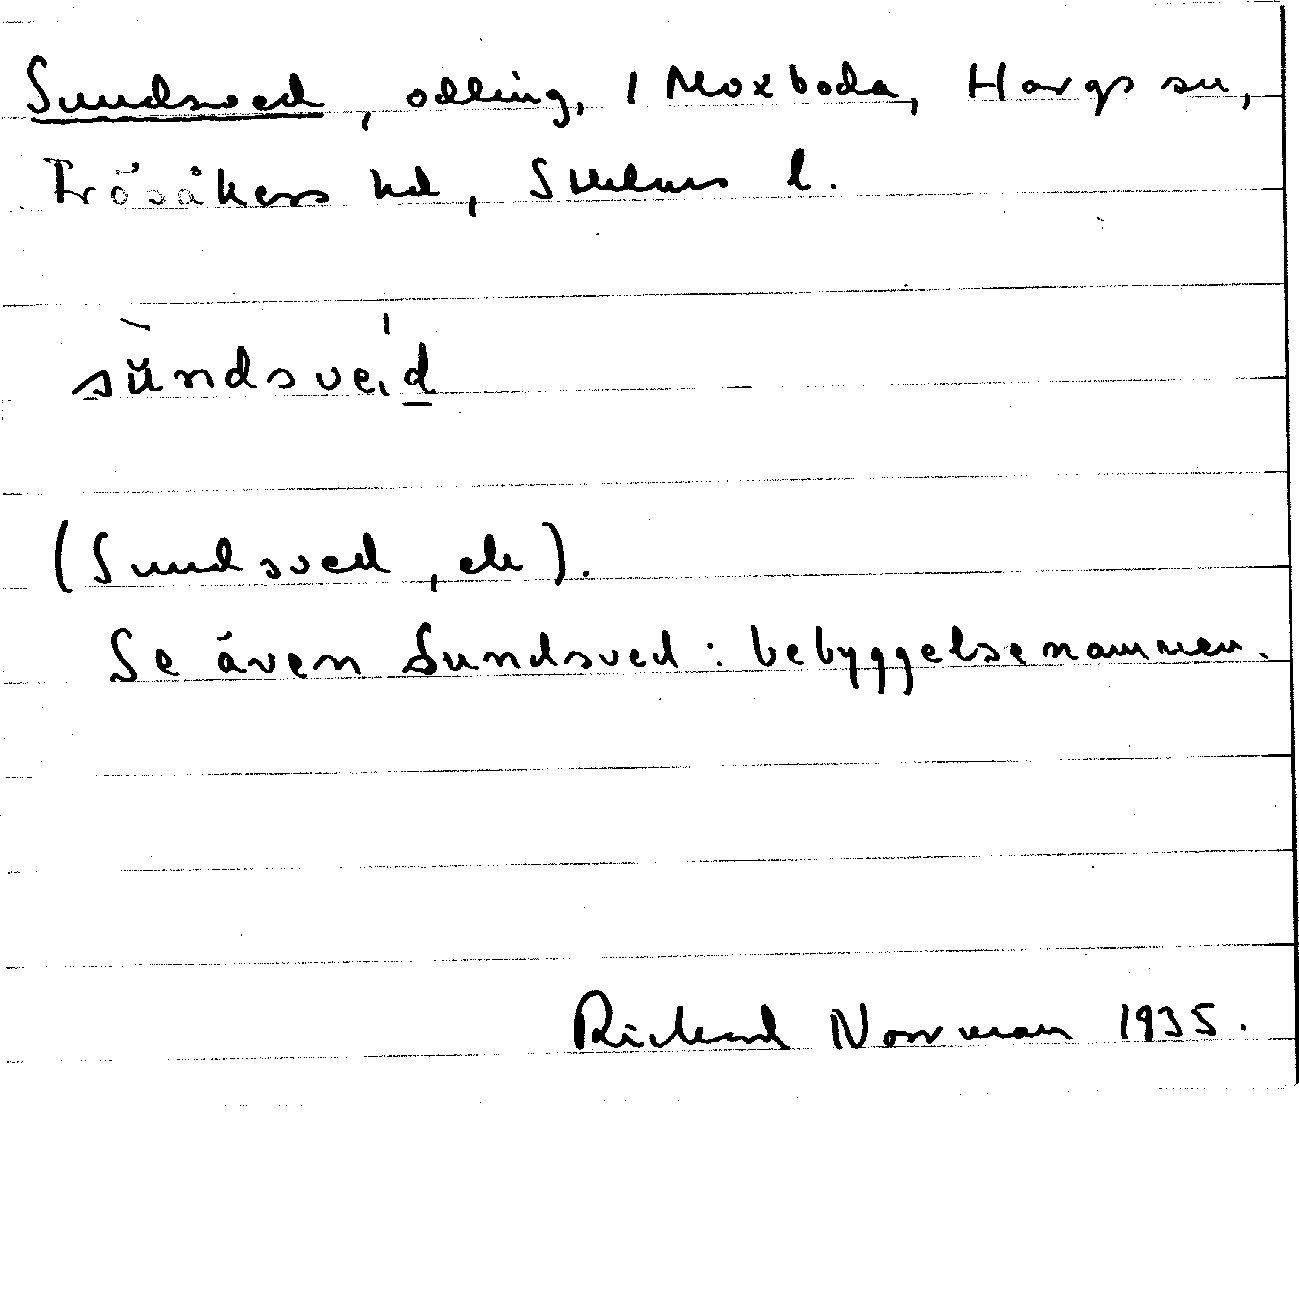 Sundsved, odling, i Moxboda, Hargs sn,
Frösåkers hd, Sthlms l.
sŭ̀ndsve̩ˈd
(Sundsved, ek).
Se även Sundsved: bebyggelsenamnen.
Rickard Norrman 1935.